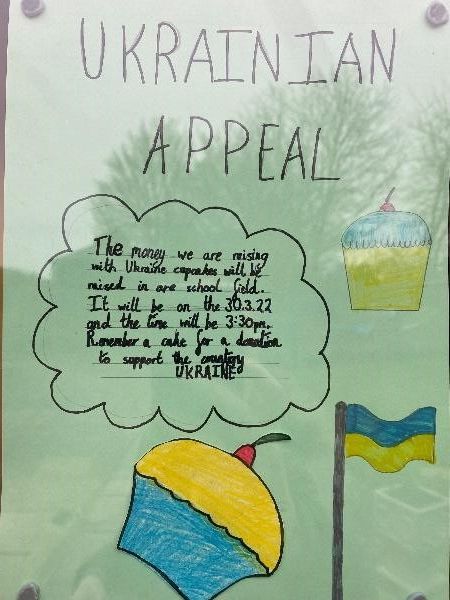 UKRAINIAN
APPEAL
The money we are raising
with Ukraine cupcakes will be
raised in are school field.
It will be on the 30.3.22
and the time will be 3:30pm.
Remember a cake for a donation
to support the country
UKRAINE